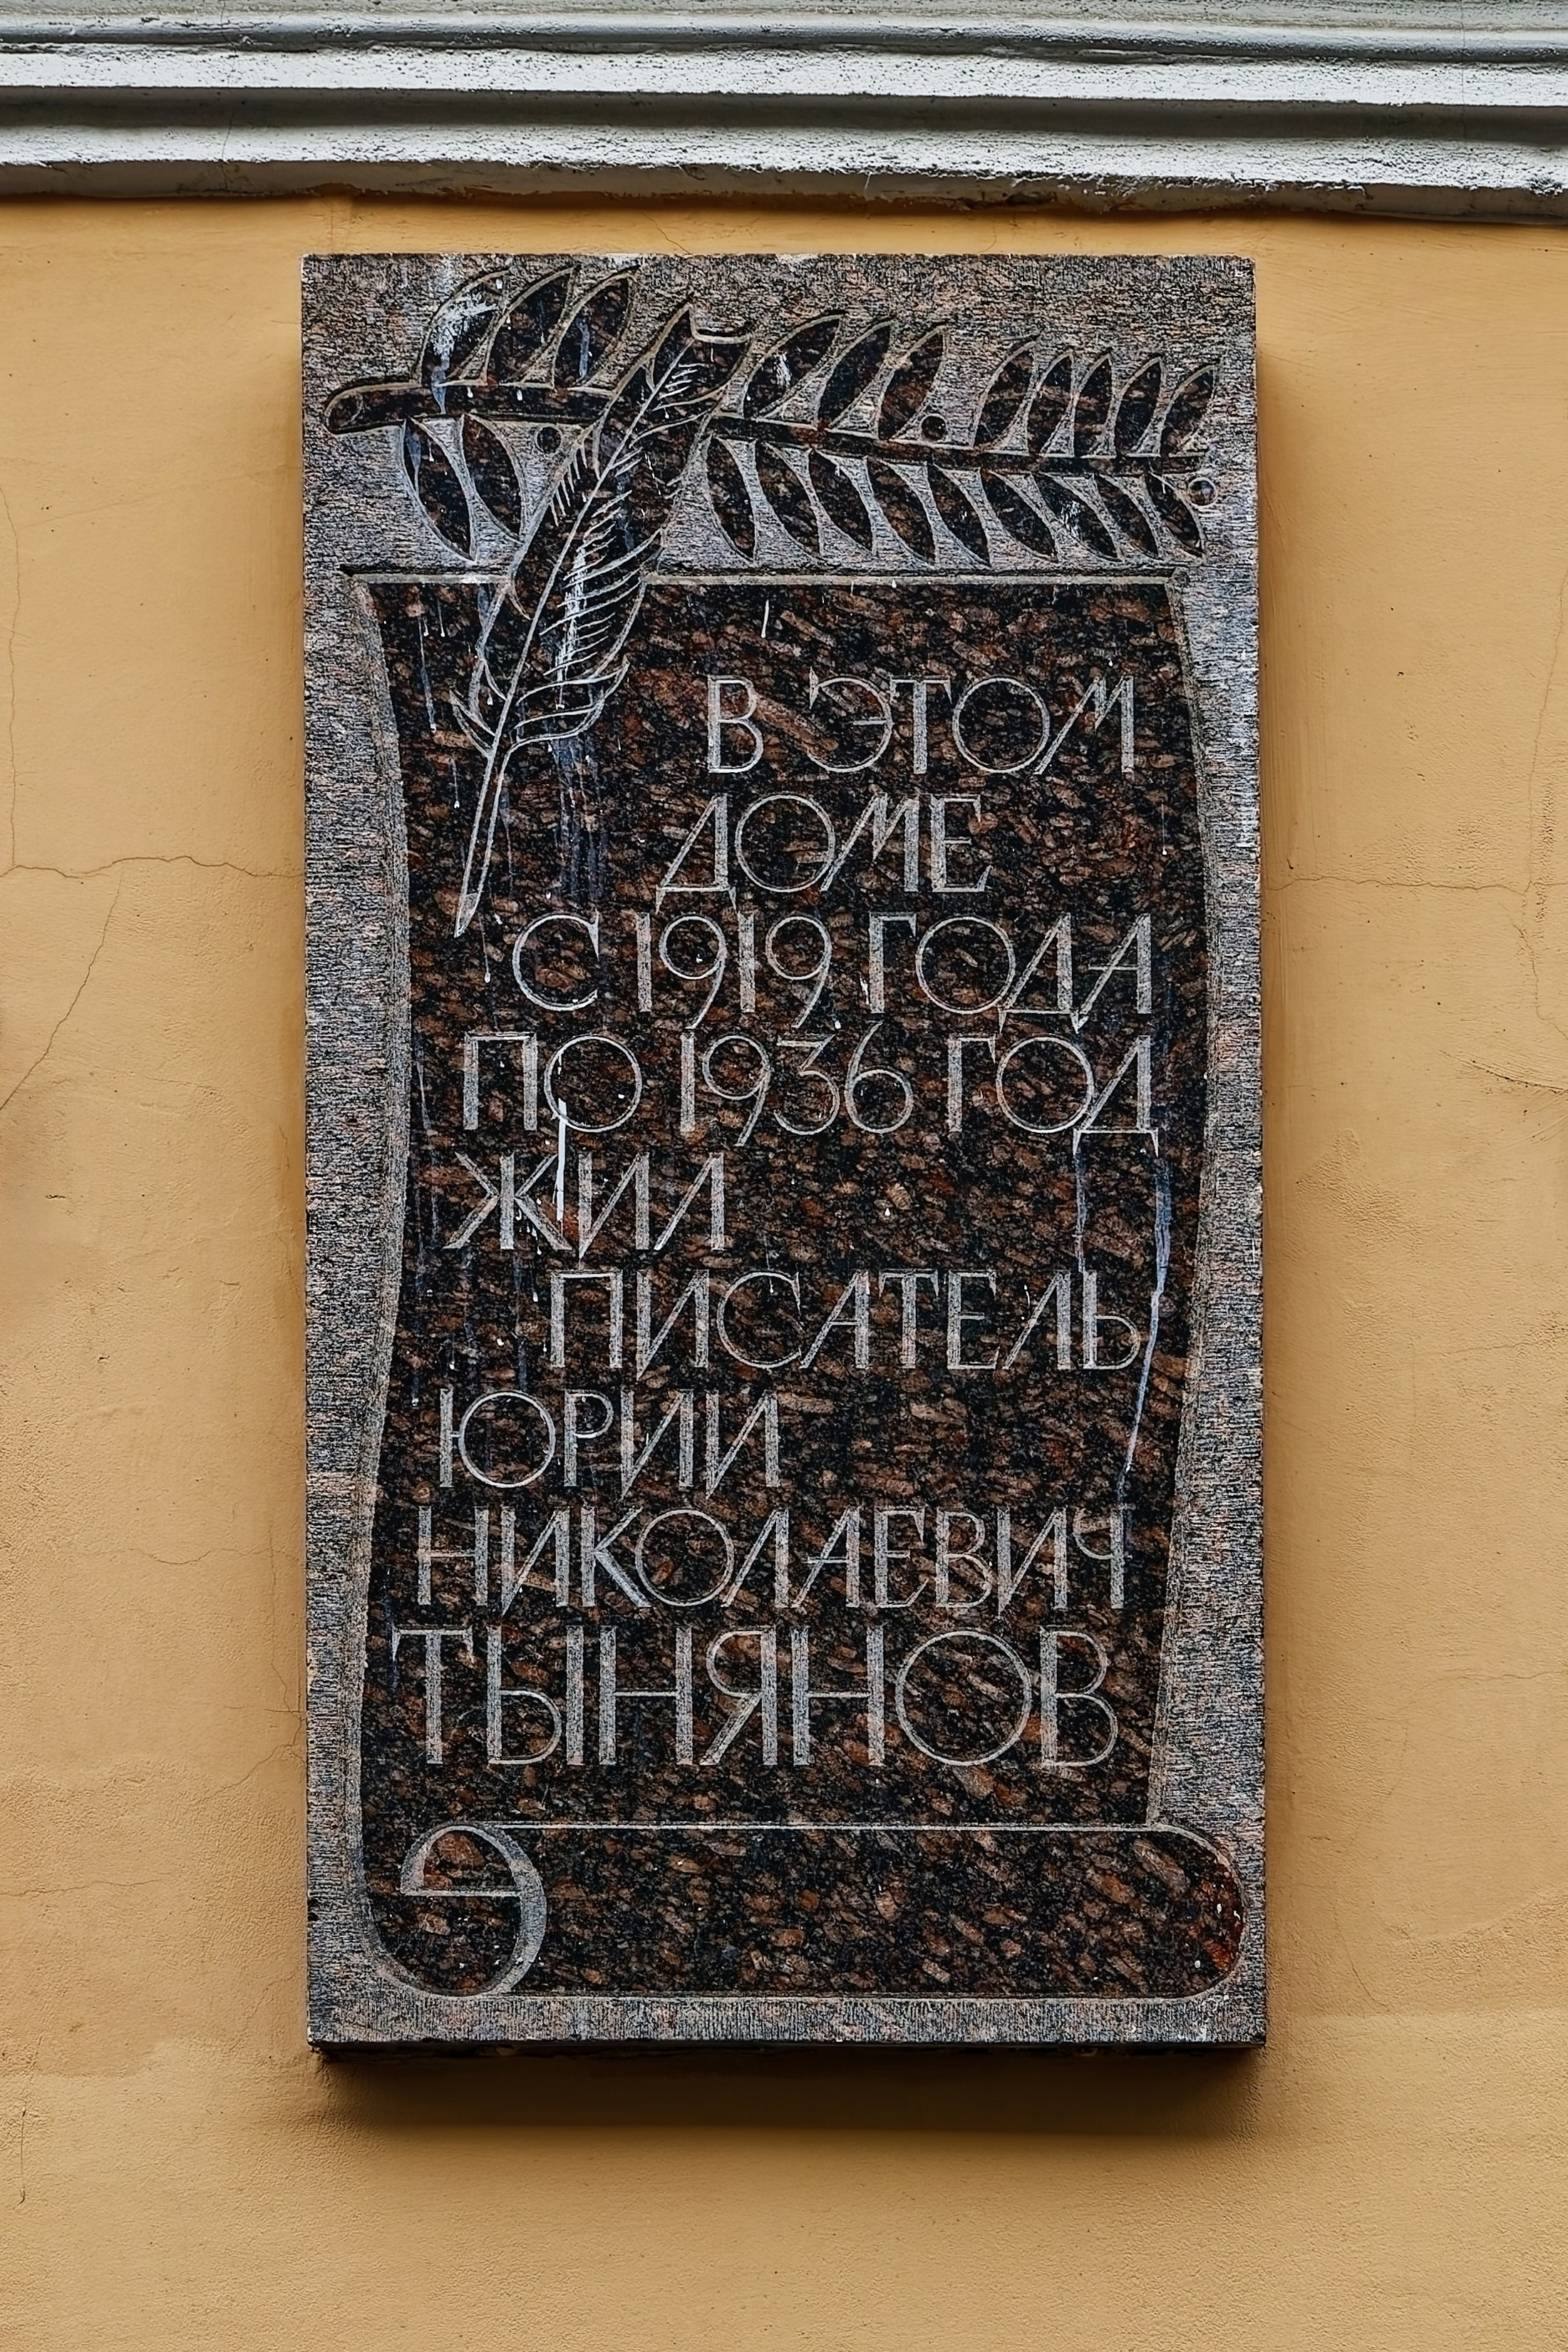 В ЭТОМ
ДОМЕ
С 1919 ГОДА
ПО 1936 ГОД
ЖИЛ
ПИСАТЕЛЬ
ЮРИИ
НИКОЛАЕВИЧ
ТЫНЯНОВ